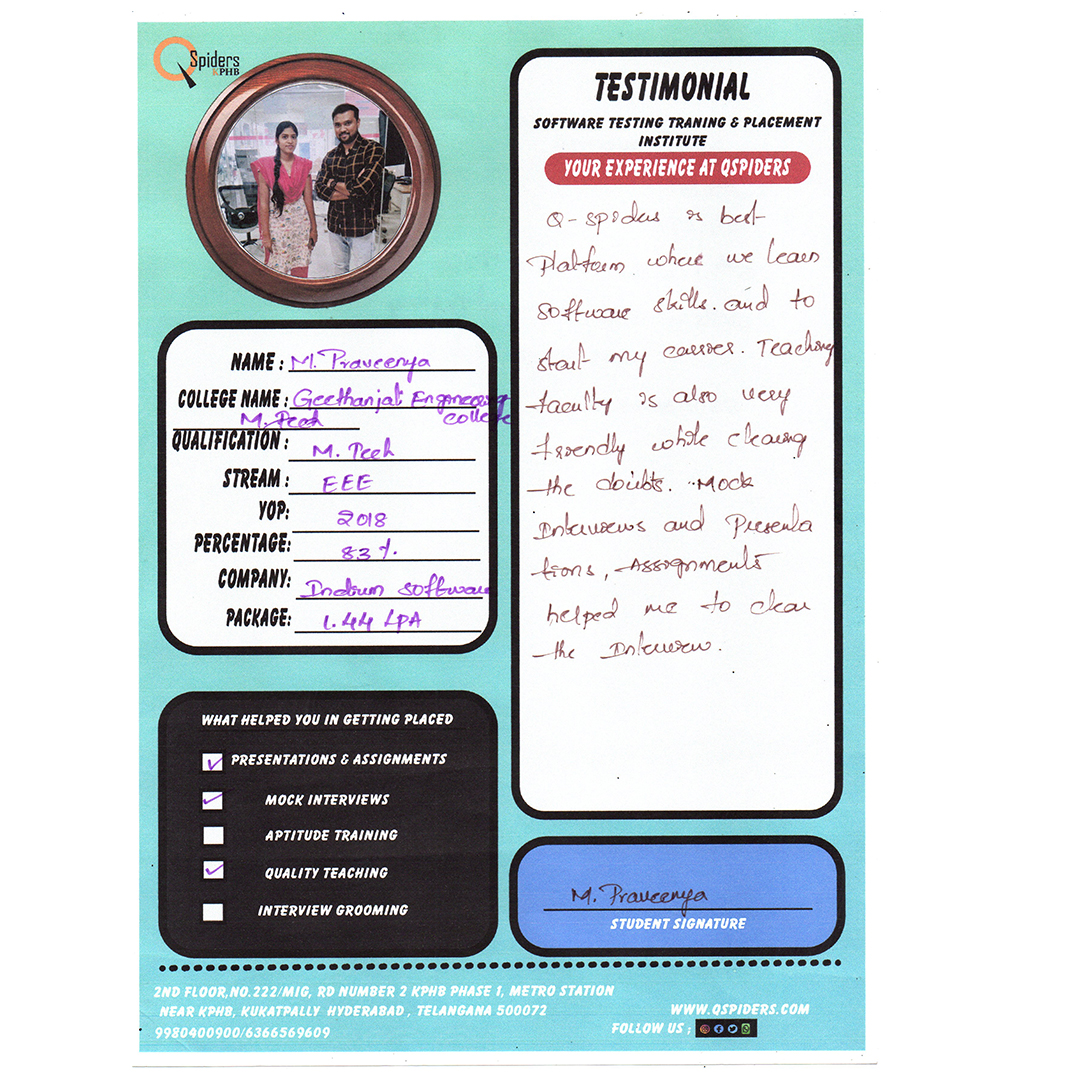 Q Spiders
KPHB
TESTIMONIAL
SOFTWARE TESTING TRANING & PLACEMENT
INSTITUTE
YOUR EXPERIENCE AT QSPIDERS
Q-spiders is best
Platform where we learn
software skills. and to
start my carrier. Teaching
faculty is also very
friendly while clearing
the doubts. Mock
Interviews and Presenta
tions, Assignments
helped me to clear
the Interview.
NAME : M. Praveenya
COLLEGE NAME : Geethanjali Engineering
college
QUALIFICATION : M. Tech
STREAM : EEE
YOP: 2018
PERCENTAGE: 83%.
COMPANY: Indium Software
PACKAGE: 1.44 LPA
WHAT HELPED YOU IN GETTING PLACED
PRESENTATIONS & ASSIGNMENTS
MOCK INTERVIEWS
APTITUDE TRAINING
QUALITY TEACHING
INTERVIEW GROOMING
M. Praveenya
STUDENT SIGNATURE
2ND FLOOR,NO.222/MIG, RD NUMBER 2 KPHB PHASE 1, METRO STATION
NEAR KPHB, KUKATPALLY HYDERABAD, TELANGANA 500072
9980400900/6366569609
WWW.QSPIDERS.COM
FOLLOW US ;